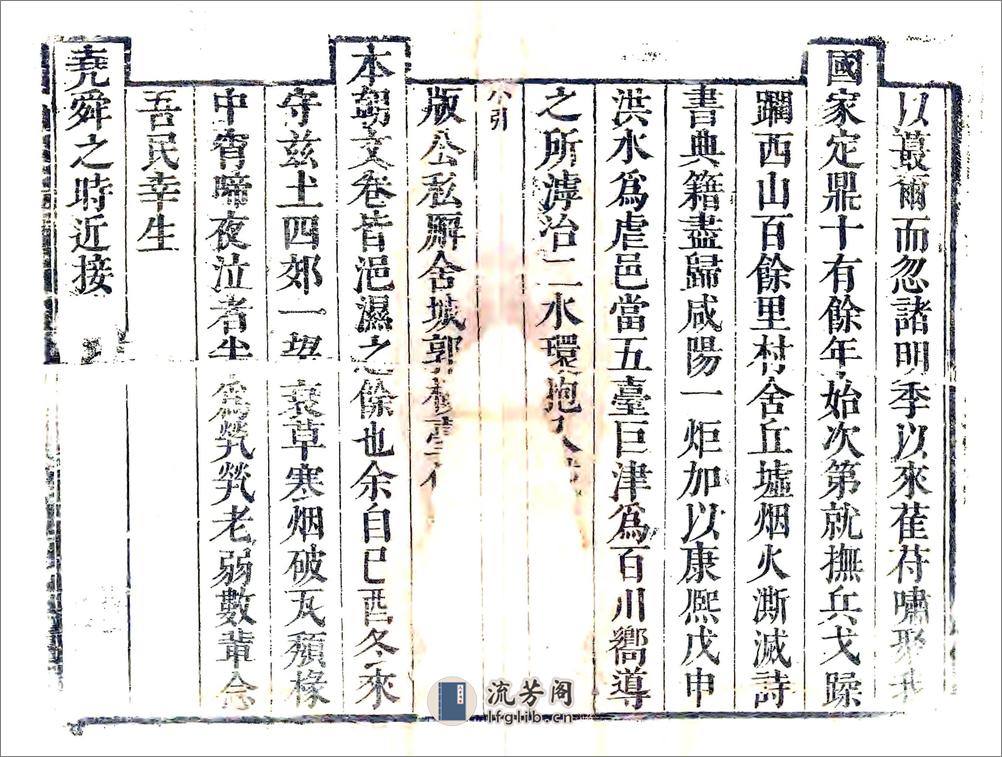 以蕞爾而忽諸明季以來萑苻嘯聚我
國家定鼎十有餘年始次第就撫兵戈蹂
躪西山百餘里村舍丘墟烟火澌滅詩
書典籍盡歸咸陽一炬加以康熈戊申
洪水爲虐邑當五臺巨津爲百川嚮導
之所滹治二水環抱
小引
版公私廨舍城郭樓臺
本朝文卷皆浥濕之餘也余自巳酉冬來
守兹土四郊一望衰草寒烟破瓦頹椽
中宵啼夜泣者半爲煢煢老弱數輩念
吾民幸生
堯舜之時近接
流芳阁
lfglib.cn